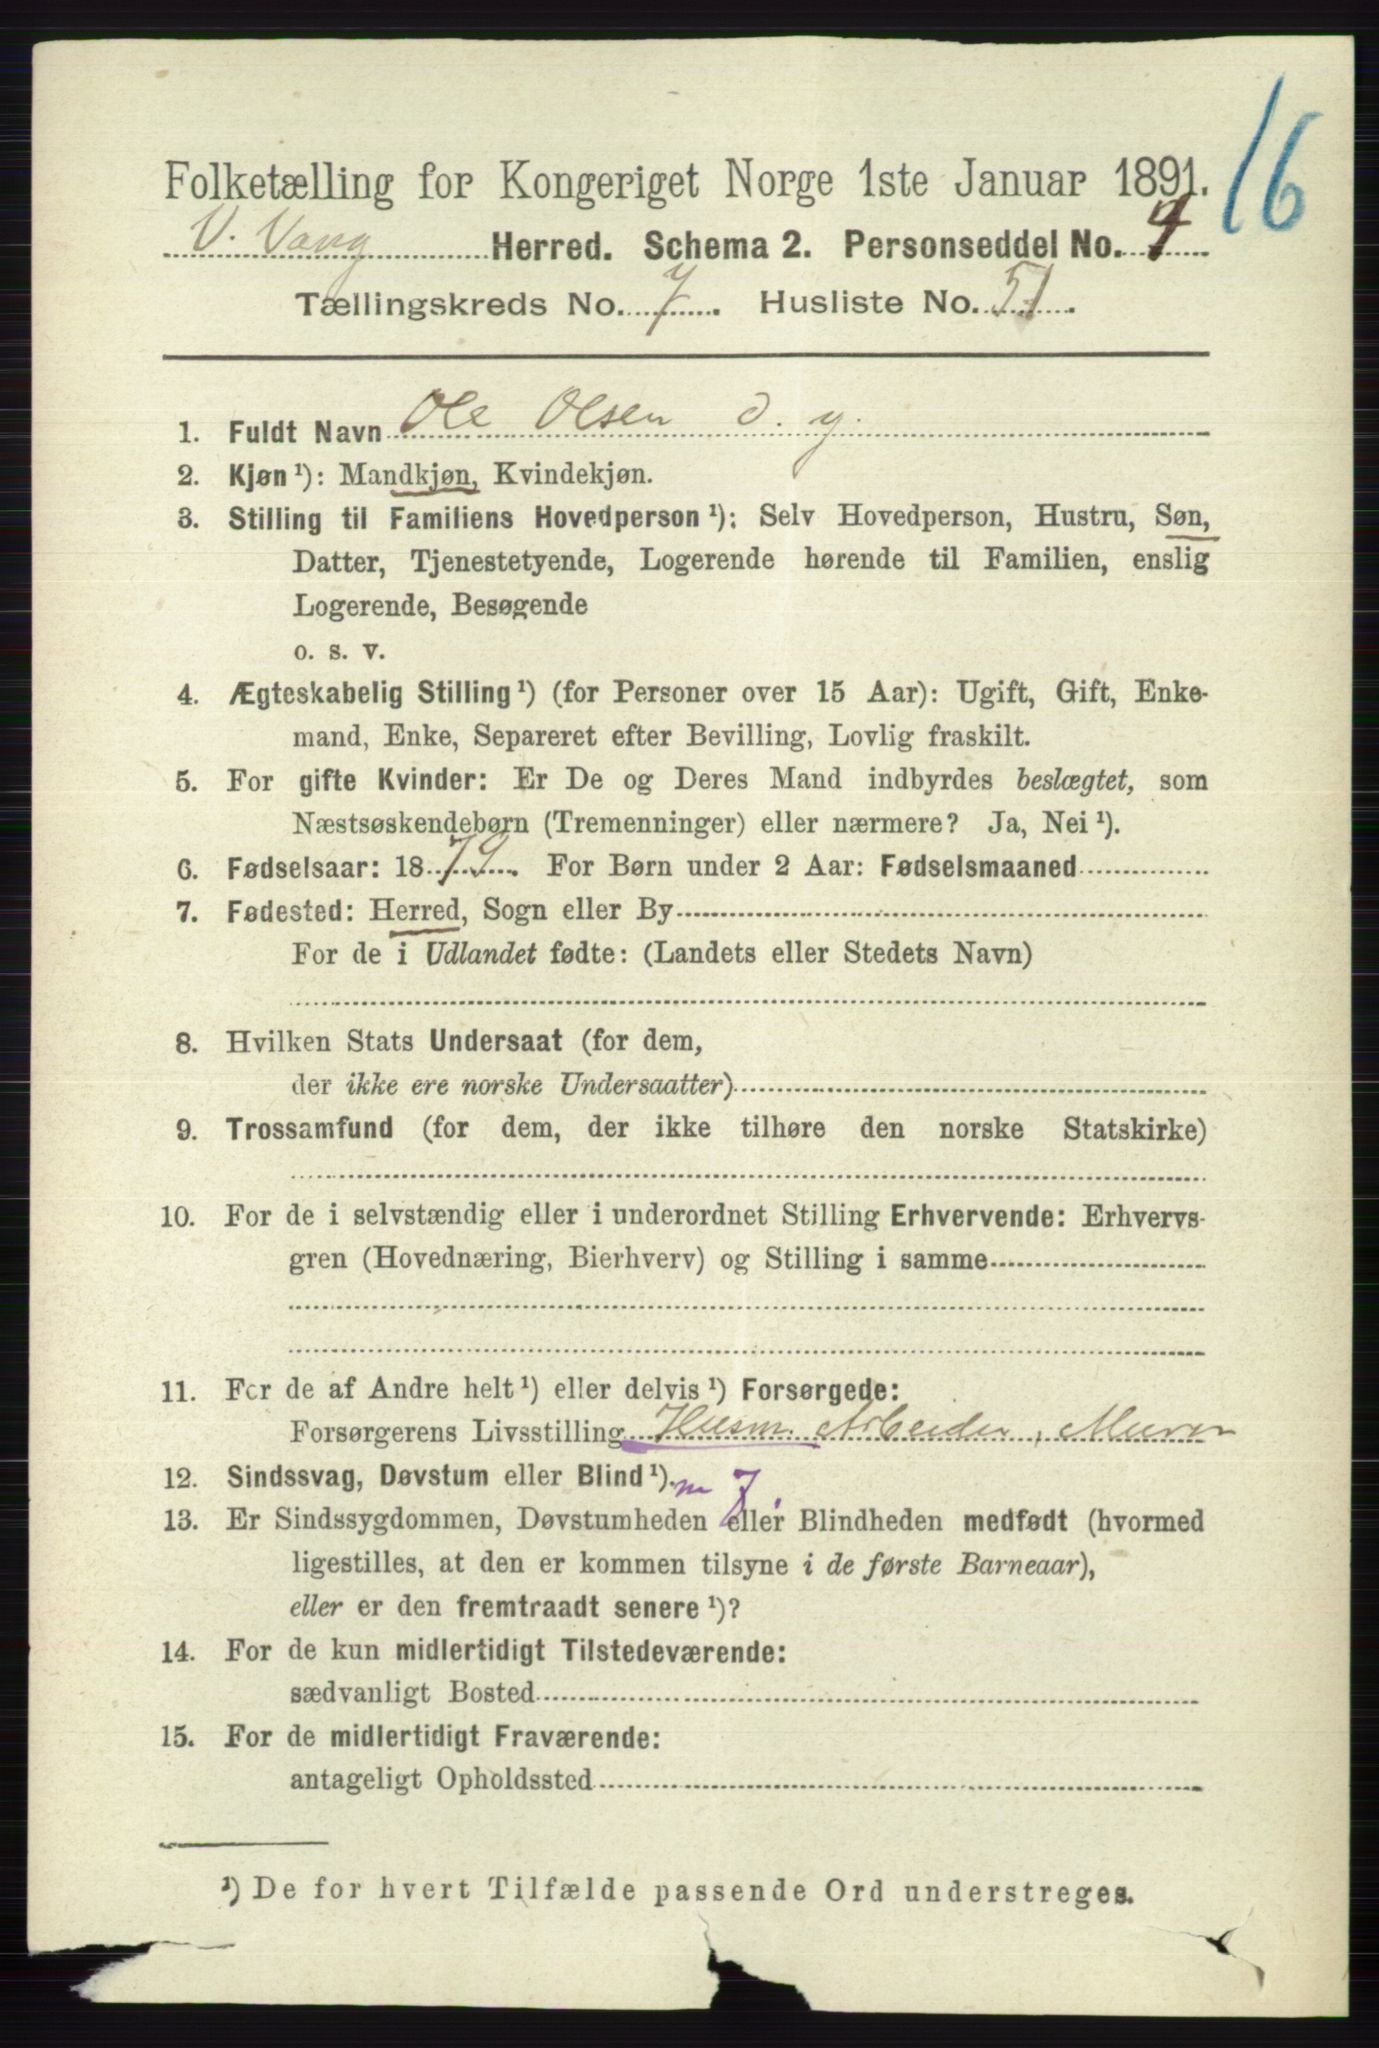 16
Folketælling for Kongeriget Norge 1ste Januar 1891.
V. Vang Herred. Schema 2. Personseddel No.
Tællingskreds No. 7. Husliste No. 51.
1. Fuldt Navn Ole Olsen d. y.
2. Kjøn ¹): Mandkjøn, Kvindekjøn.
3. Stilling til Familiens Hovedperson ¹): Selv Hovedperson, Hustru, Søn,
Datter, Tjenestetyende, Logerende hørende til Familien, enslig
Logerende, Besøgende
o. s. v.
4. Ægteskabelig Stilling ¹) (for Personer over 15 Aar): Ugift, Gift, Enke-
mand, Enke, Separeret efter Bevilling, Lovlig fraskilt.
5. For gifte Kvinder: Er De og Deres Mand indbyrdes beslægtet, som
Næstsøskendebørn (Tremenninger) eller nærmere? Ja, Nei ¹).
6. Fødselsaar: 1879. For Børn under 2 Aar: Fødselsmaaned
7. Fødested: Herred, Sogn eller By
For de i Udlandet fødte: (Landets eller Stedets Navn)
8. Hvilken Stats Undersaat (for dem,
der ikke ere norske Undersaatter)
9. Trossamfund (for dem, der ikke tilhøre den norske Statskirke)
10. For de i selvstændig eller i underordnet Stilling Erhvervende: Erhvervs-
gren (Hovednæring, Bierhverv) og Stilling i samme
11. For de af Andre helt ¹) eller delvis ¹) Forsørgede:
Forsørgerens Livsstilling Husm. Arbeider, Murer
12. Sindssvag, Døvstum eller Blind ¹). m 7.
13. Er Sindssygdommen, Døvstumheden eller Blindheden medfødt (hvormed
ligestilles, at den er kommen tilsyne i de første Barneaar),
eller er den fremtraadt senere ¹)?
14. For de kun midlertidigt Tilstedeværende:
sædvanligt Bosted
15. For de midlertidigt Fraværende:
antageligt Opholdssted
¹) De for hvert Tilfælde passende Ord understreges.